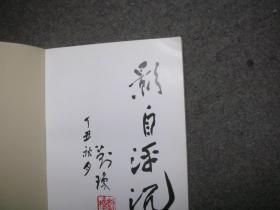 影自浮沉
丁丑秋夕
刘琼